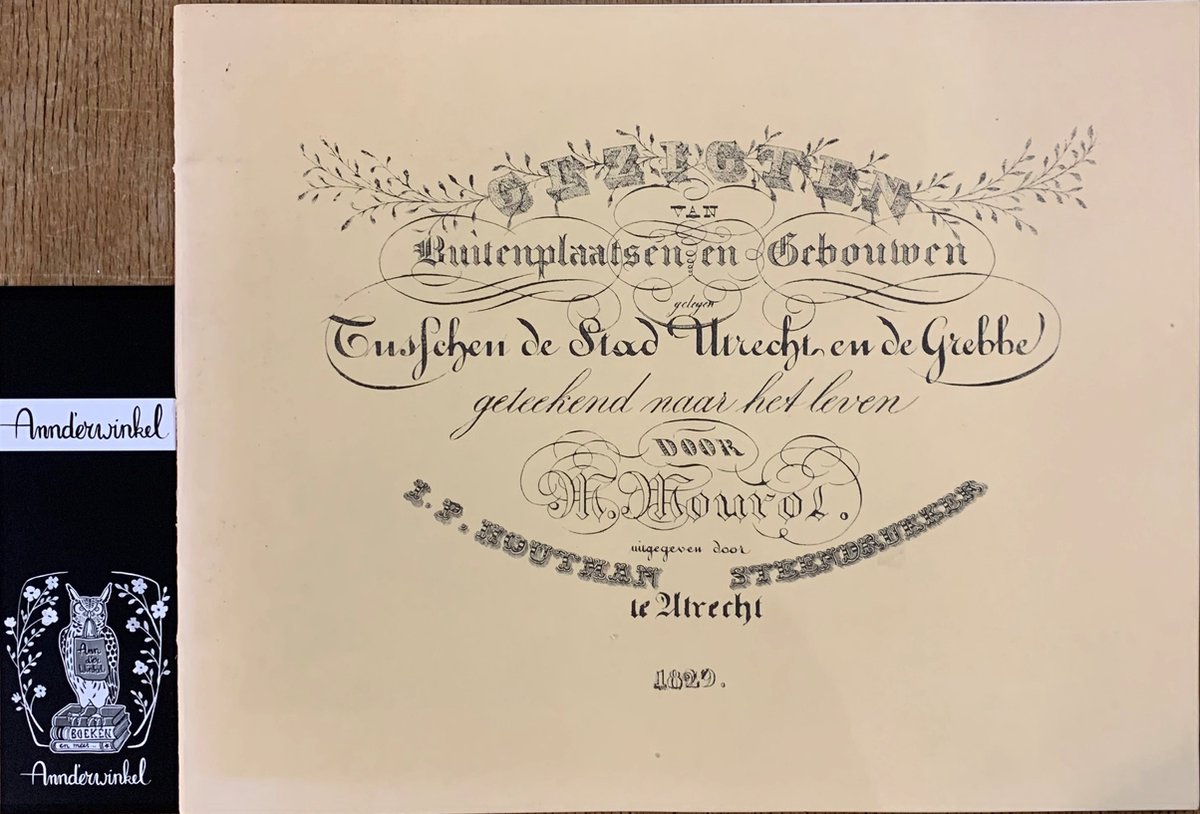 GEZIGTEN
VAN
Buitenplaatsen en Gebouwen
gelegen
Tusschen de Stad Utrecht en de Grebbe
geteekend naar het leven
DOOR
M. Mourot.
uitgegeven door
I. P. HOUTMAN STEENDRUKKER
te Utrecht
1829.
Annderwinkel
Ann
der
Winkel
BOEKEN
en meer
Annderwinkel